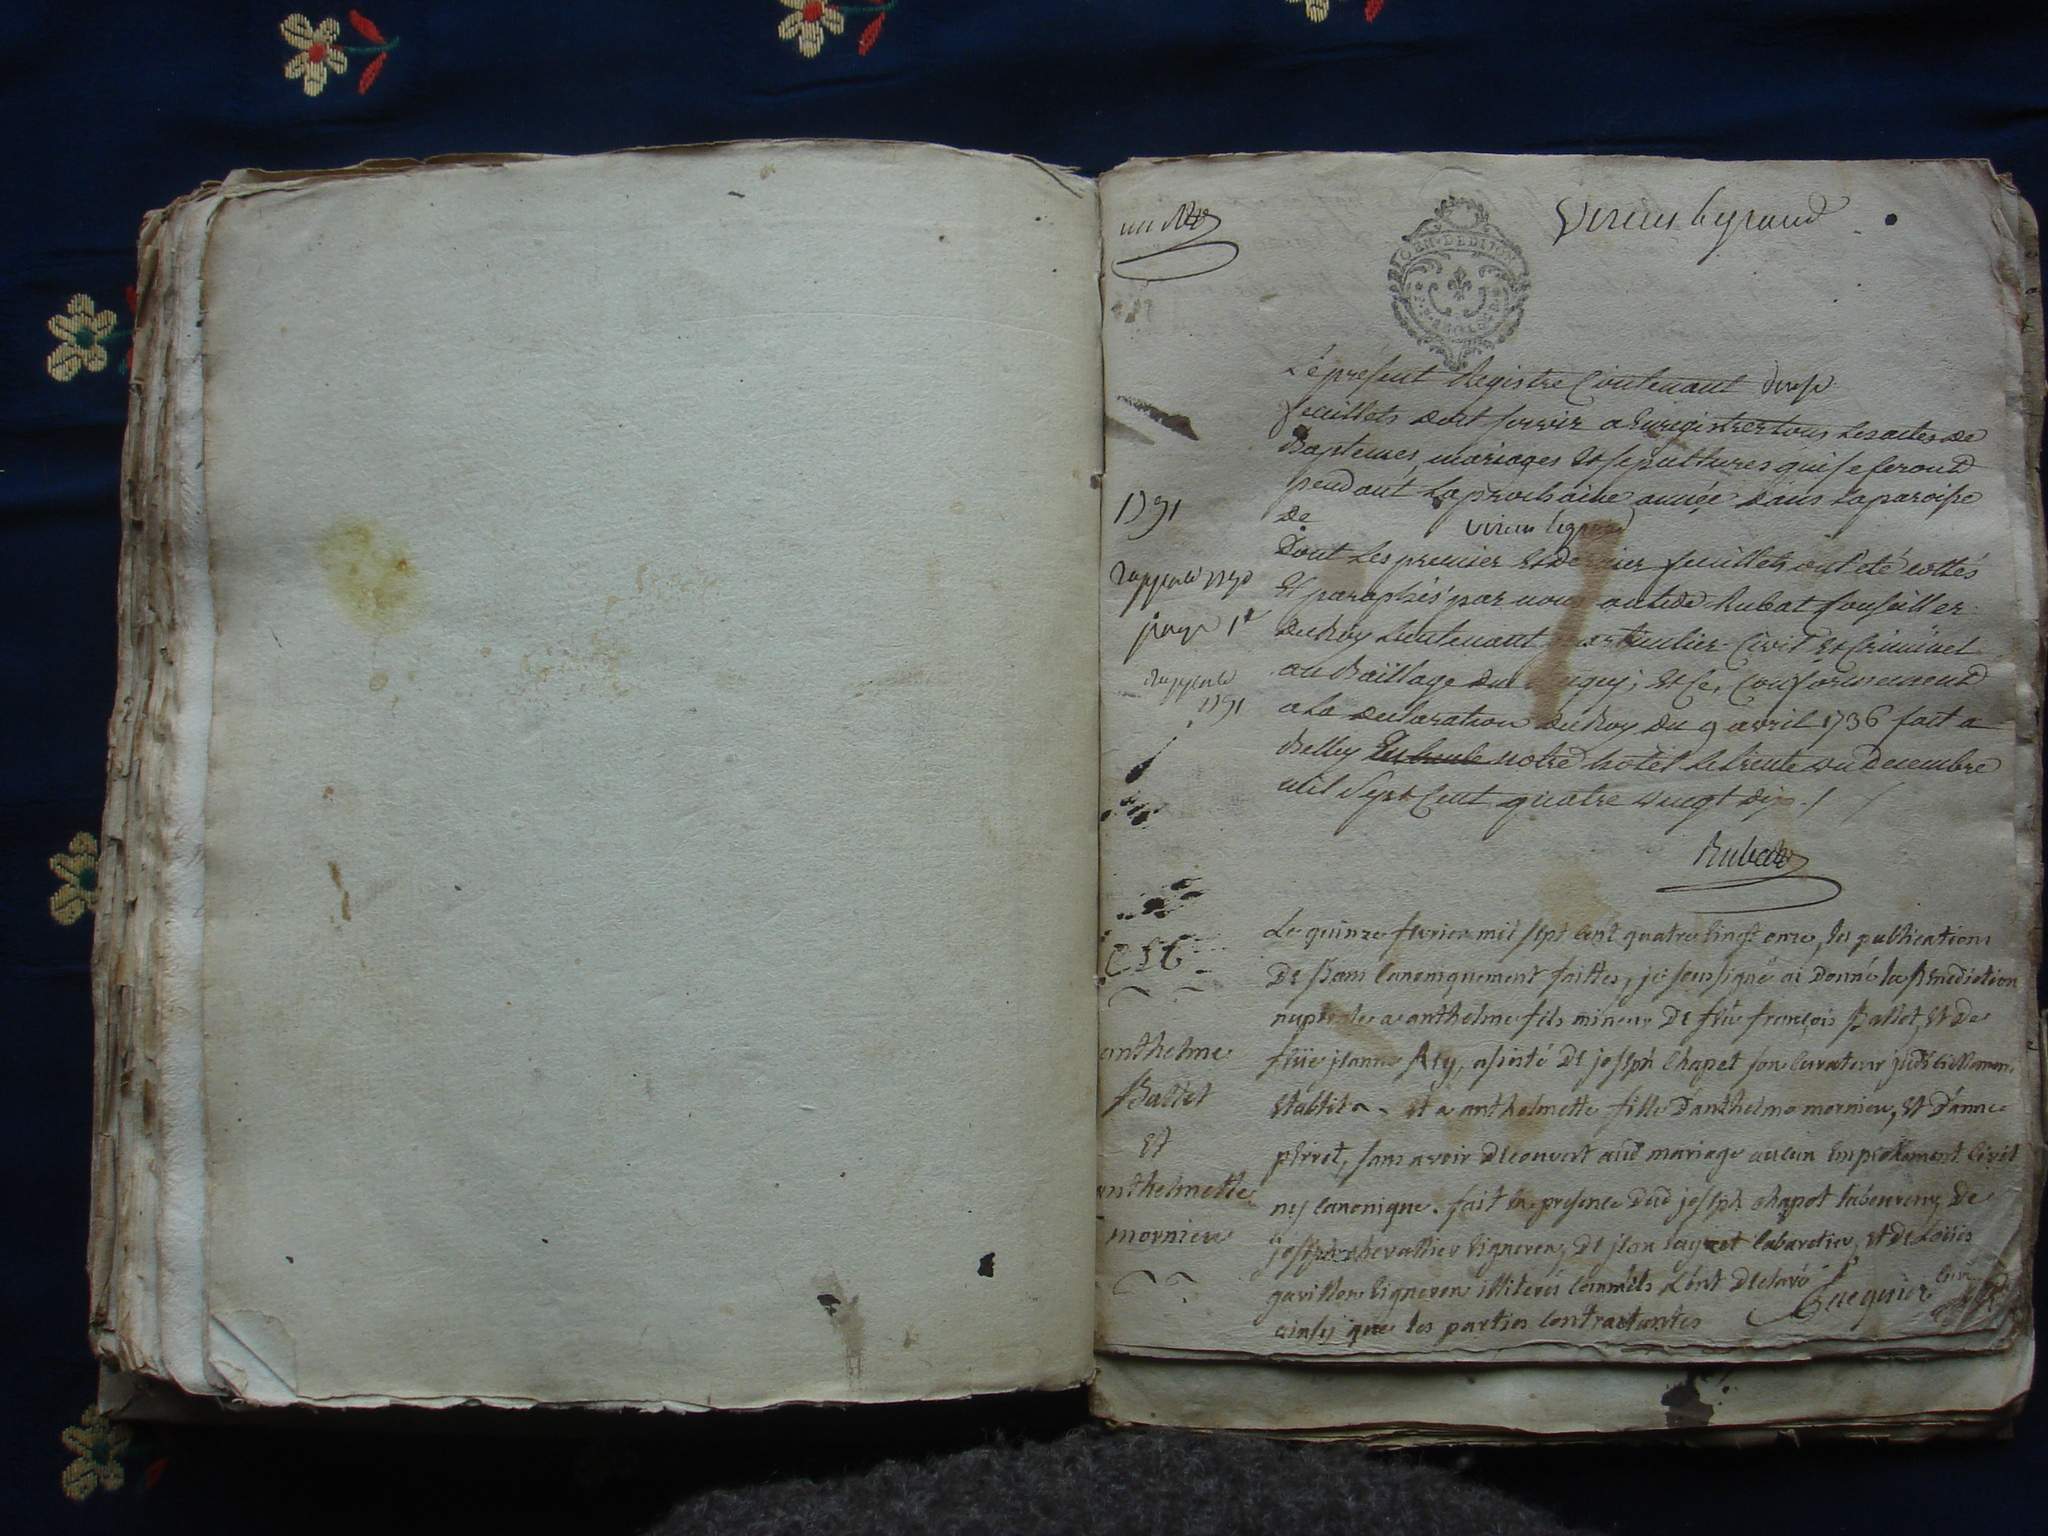 Virieu legrand
GEN · DE DIJON
Le présent Registre Contenant
feuillets doit servir a Enregistrer tous les actes de
Baptemes, mariages Et sepultures qui se feront
pendant la prochaine année dans la paroisse
de Virieu legrand
Dont les premier Et dernier feuillets ont été cottés
Et paraphés par nous antide Rubat Conseiller
du Roy Lieutenant particulier Civil Et Criminel
au Baillage du Bugey; Et Ce, Conformement
a la declaration du Roy du 9 avril 1736 fait a
Belley notre hotel le trente un decembre
mil Sept Cent quatre vingt dix ./.
Rubat
1791
page 1re
1791
anthelme
Ballet
Et
anthelmette
mornieu
Le quinze fevrier mil sept cent quatre vingt onze, les publications
De Bans Canoniquement faittes, je soussigné ai Donné la Benediction
nuptiale a anthelme fils mineur De feu françois Ballet, Et de
feüe jeanne Rey, assisté De joseph Chapet son Curateur
Etabli Et a anthelmette fille D'anthelme mornieu, Et D'anne
perret, sans avoir Decouvert audt mariage aucun Empechement Civil
ny Canonique. fait En presence Dud joseph Chapet laboureur, De
joseph chevallier Vigneron, De jean cabaretier, Et De Loüis
gavillon Vigneron illiterés Comm'ils L'ont Declaré
ainsy que les parties Contractantes